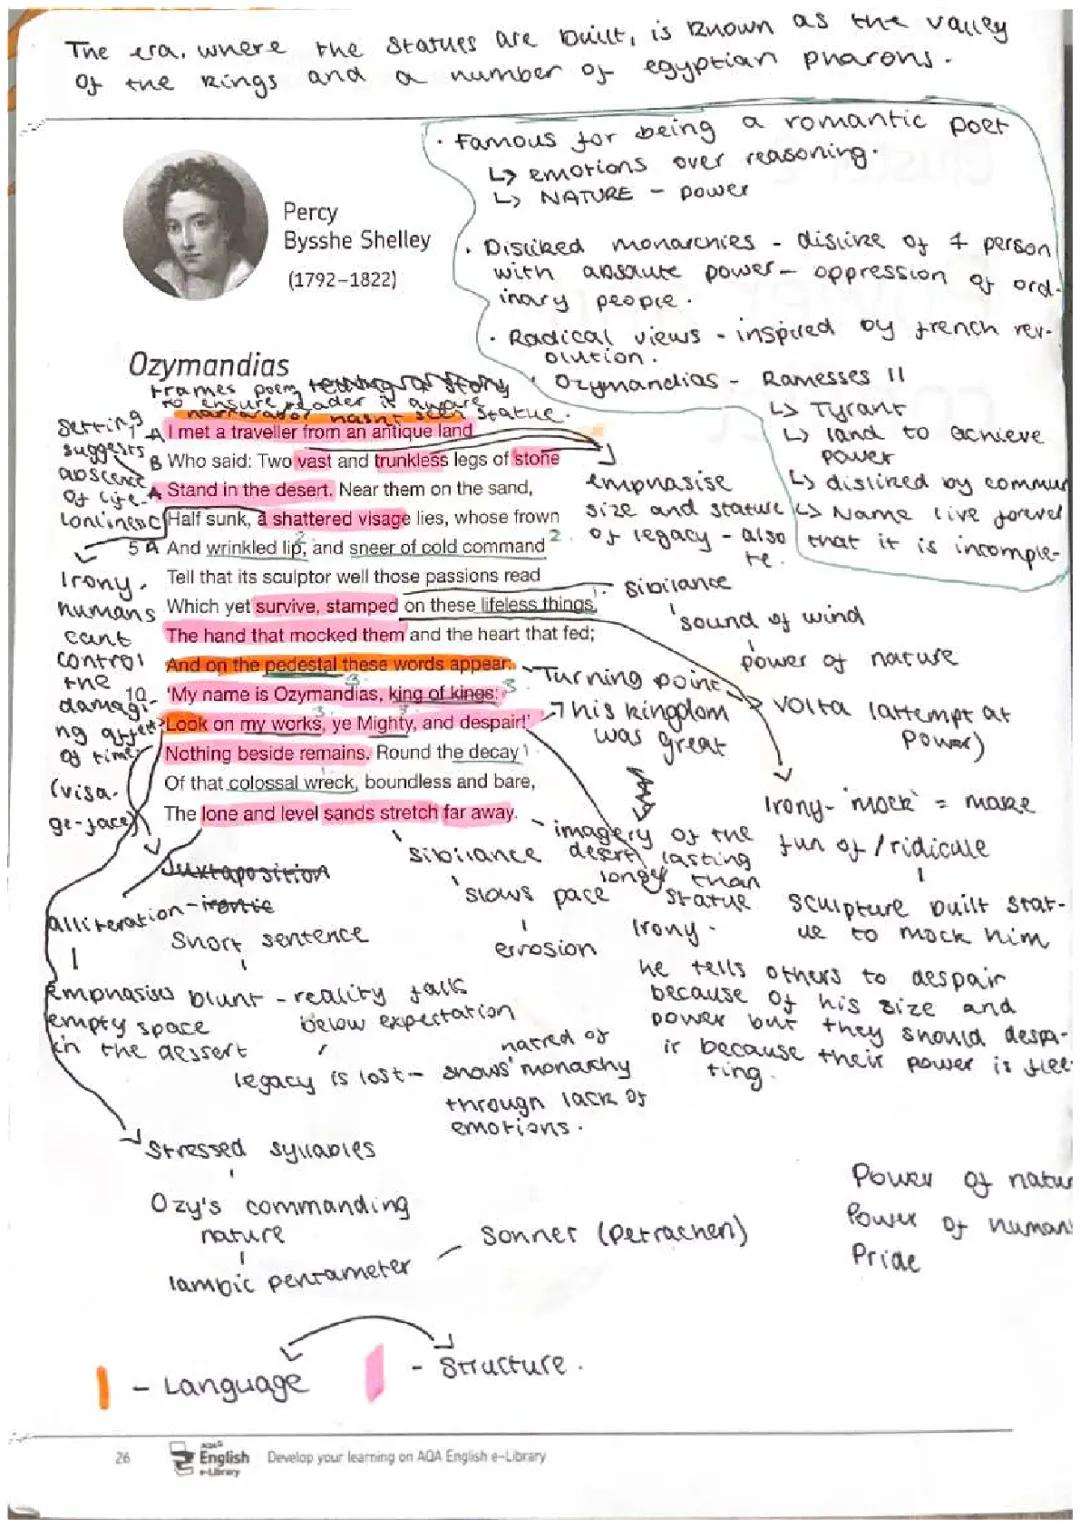 The era, where the statues are built, is known as the valley
of the kings and a number of egyptian pharons.
· Famous for being a romantic poet
↳ emotions over reasoning.
↳ NATURE - power
Percy
Bysshe Shelley
(1792–1822)
· Disliked monarchies - dislike of 1 person
with absolute power - oppression of ord-
inary people.
· Radical views - inspired by french rev-
olution.
· Ozymandias - Ramesses II
↳ Tyrant
↳ land to achieve
power
↳ disliked by commun
↳ Name live forever
Ozymandias
frames poem telling of story
to ensure reader is aware
narrarator hasnt seen statue.
Setting
suggests
abscence
of life.
Lonliness
A I met a traveller from an antique land
B Who said: Two vast and trunkless legs of stone
A Stand in the desert. Near them on the sand,
C Half sunk, a shattered visage lies, whose frown
5 A And wrinkled lip, and sneer of cold command 2
Tell that its sculptor well those passions read
Which yet survive, stamped on these lifeless things,
The hand that mocked them and the heart that fed;
And on the pedestal these words appear:
10 'My name is Ozymandias, king of kings:
Look on my works, ye Mighty, and despair!'
Nothing beside remains. Round the decay
Of that colossal wreck, boundless and bare,
The lone and level sands stretch far away.
emphasise
size and stature
of legacy - also that it is incomple-
te.
Irony.
humans
cant
control
the
damagi-
ng affet
of time
(visa-
ge-face)
sibilance
sound of wind
power of nature
Turning point
volta (attempt at
power)
his kingdom
was great
Irony - 'mock' = make
fun of / ridicule
sculpture built stat-
ue to mock him
imagery of the
desert lasting
longer than
statue
sibilance
slows pace
errosion
Juxtaposition
alliteration - irontic
Emphasiss
empty space
in the dessert
Short sentence
blunt - reality falls
below expectation
legacy is lost - shows hatred of
monarchy
through lack of
emotions.
Irony.
he tells others to despair
because of his size and
power but they should despa-
ir because their power is flee-
ting.
Stressed syllables
Ozy's commanding
nature
Iambic pentameter
Sonner (Petrachen)
Power of natur
Power of human
Pride
- Language
- Structure.
26
AQA
English
e-Library
Develop your learning on AQA English e-Library